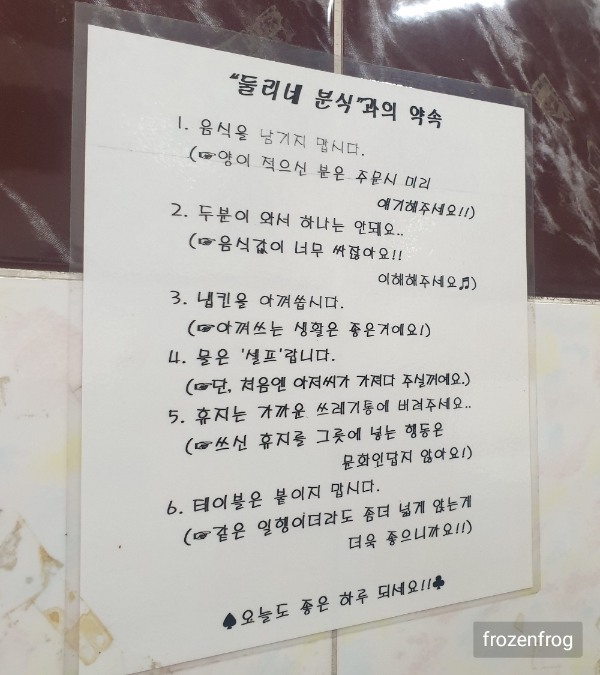 "둘리네 분식"과의 약속
1. 음식을 남기지 맙시다.
(☞양이 적으신 분은 주문시 미리
얘기해주세요!!)
2. 두분이 와서 하나는 안돼요..
(☞음식값이 너무 싸잖아요!!
이해해주세요♬)
3. 냅킨을 아껴씁시다.
(☞아껴쓰는 생활은 좋은거에요!)
4. 물은 '셀프'랍니다.
(☞단, 처음엔 아저씨가 가져다 주실꺼에요.)
5. 휴지는 가까운 쓰레기통에 버려주세요..
(☞쓰신 휴지를 그릇에 넣는 행동은
문화인답지 않아요!)
6. 테이블은 붙이지 맙시다.
(☞같은 일행이더라도 좀더 넓게 앉는게
더욱 좋으니까요!!)
♠오늘도 좋은 하루 되세요!!♣
frozenfrog